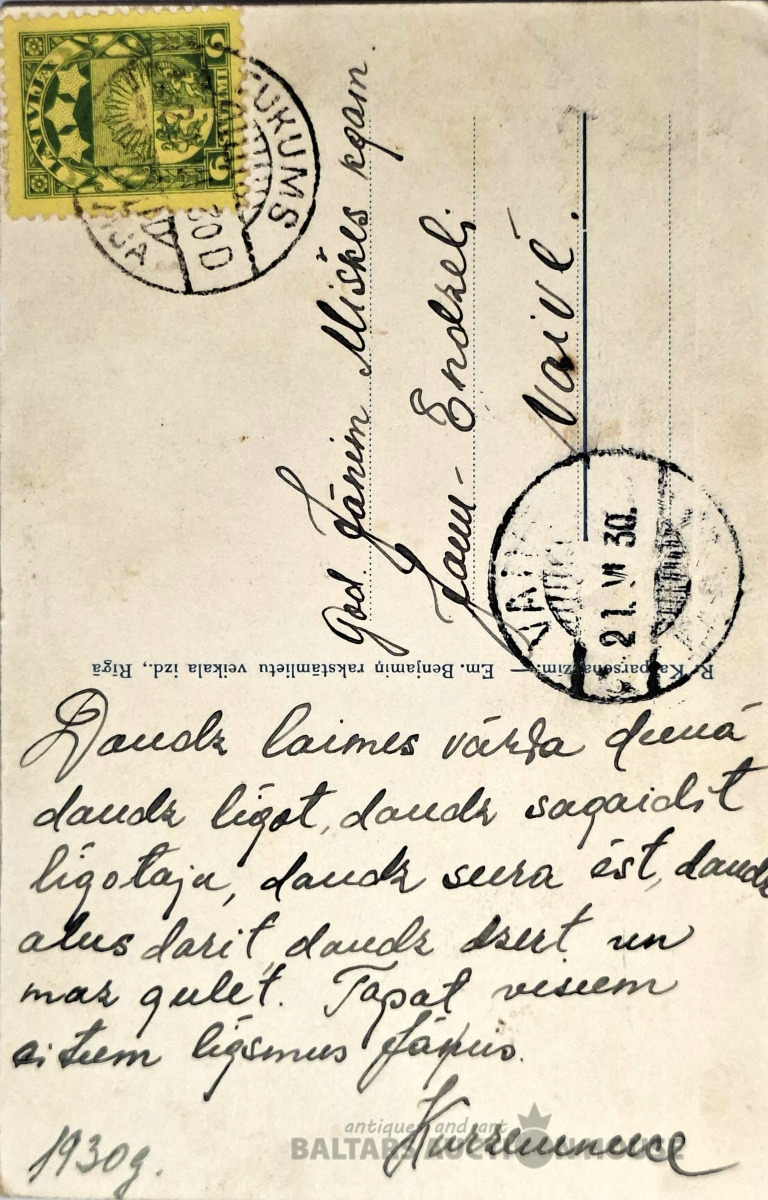 LATVIJA
6 SANTIMI 6
TUKUMS
30 D
God. Jānim Miškes kgam.
Jaun-Endzeli
Vaivē.
VAIVE
21. VI 30.
R. Kasparsona zīm. — Em. Benjamiņ rakstāmlietu veikala izd., Rīgā
Daudz laimes vārda dienā
daudz līgot, daudz sagaidīt
līgotaju, daudz siera ēst, daudz
alus darīt, daudz dzert un
maz gulēt. Tapat visiem
citiem līgsmus Jāņus.
Kurzemniece
1930g.
antiques and art
BALTARS AUCTION HOUSE